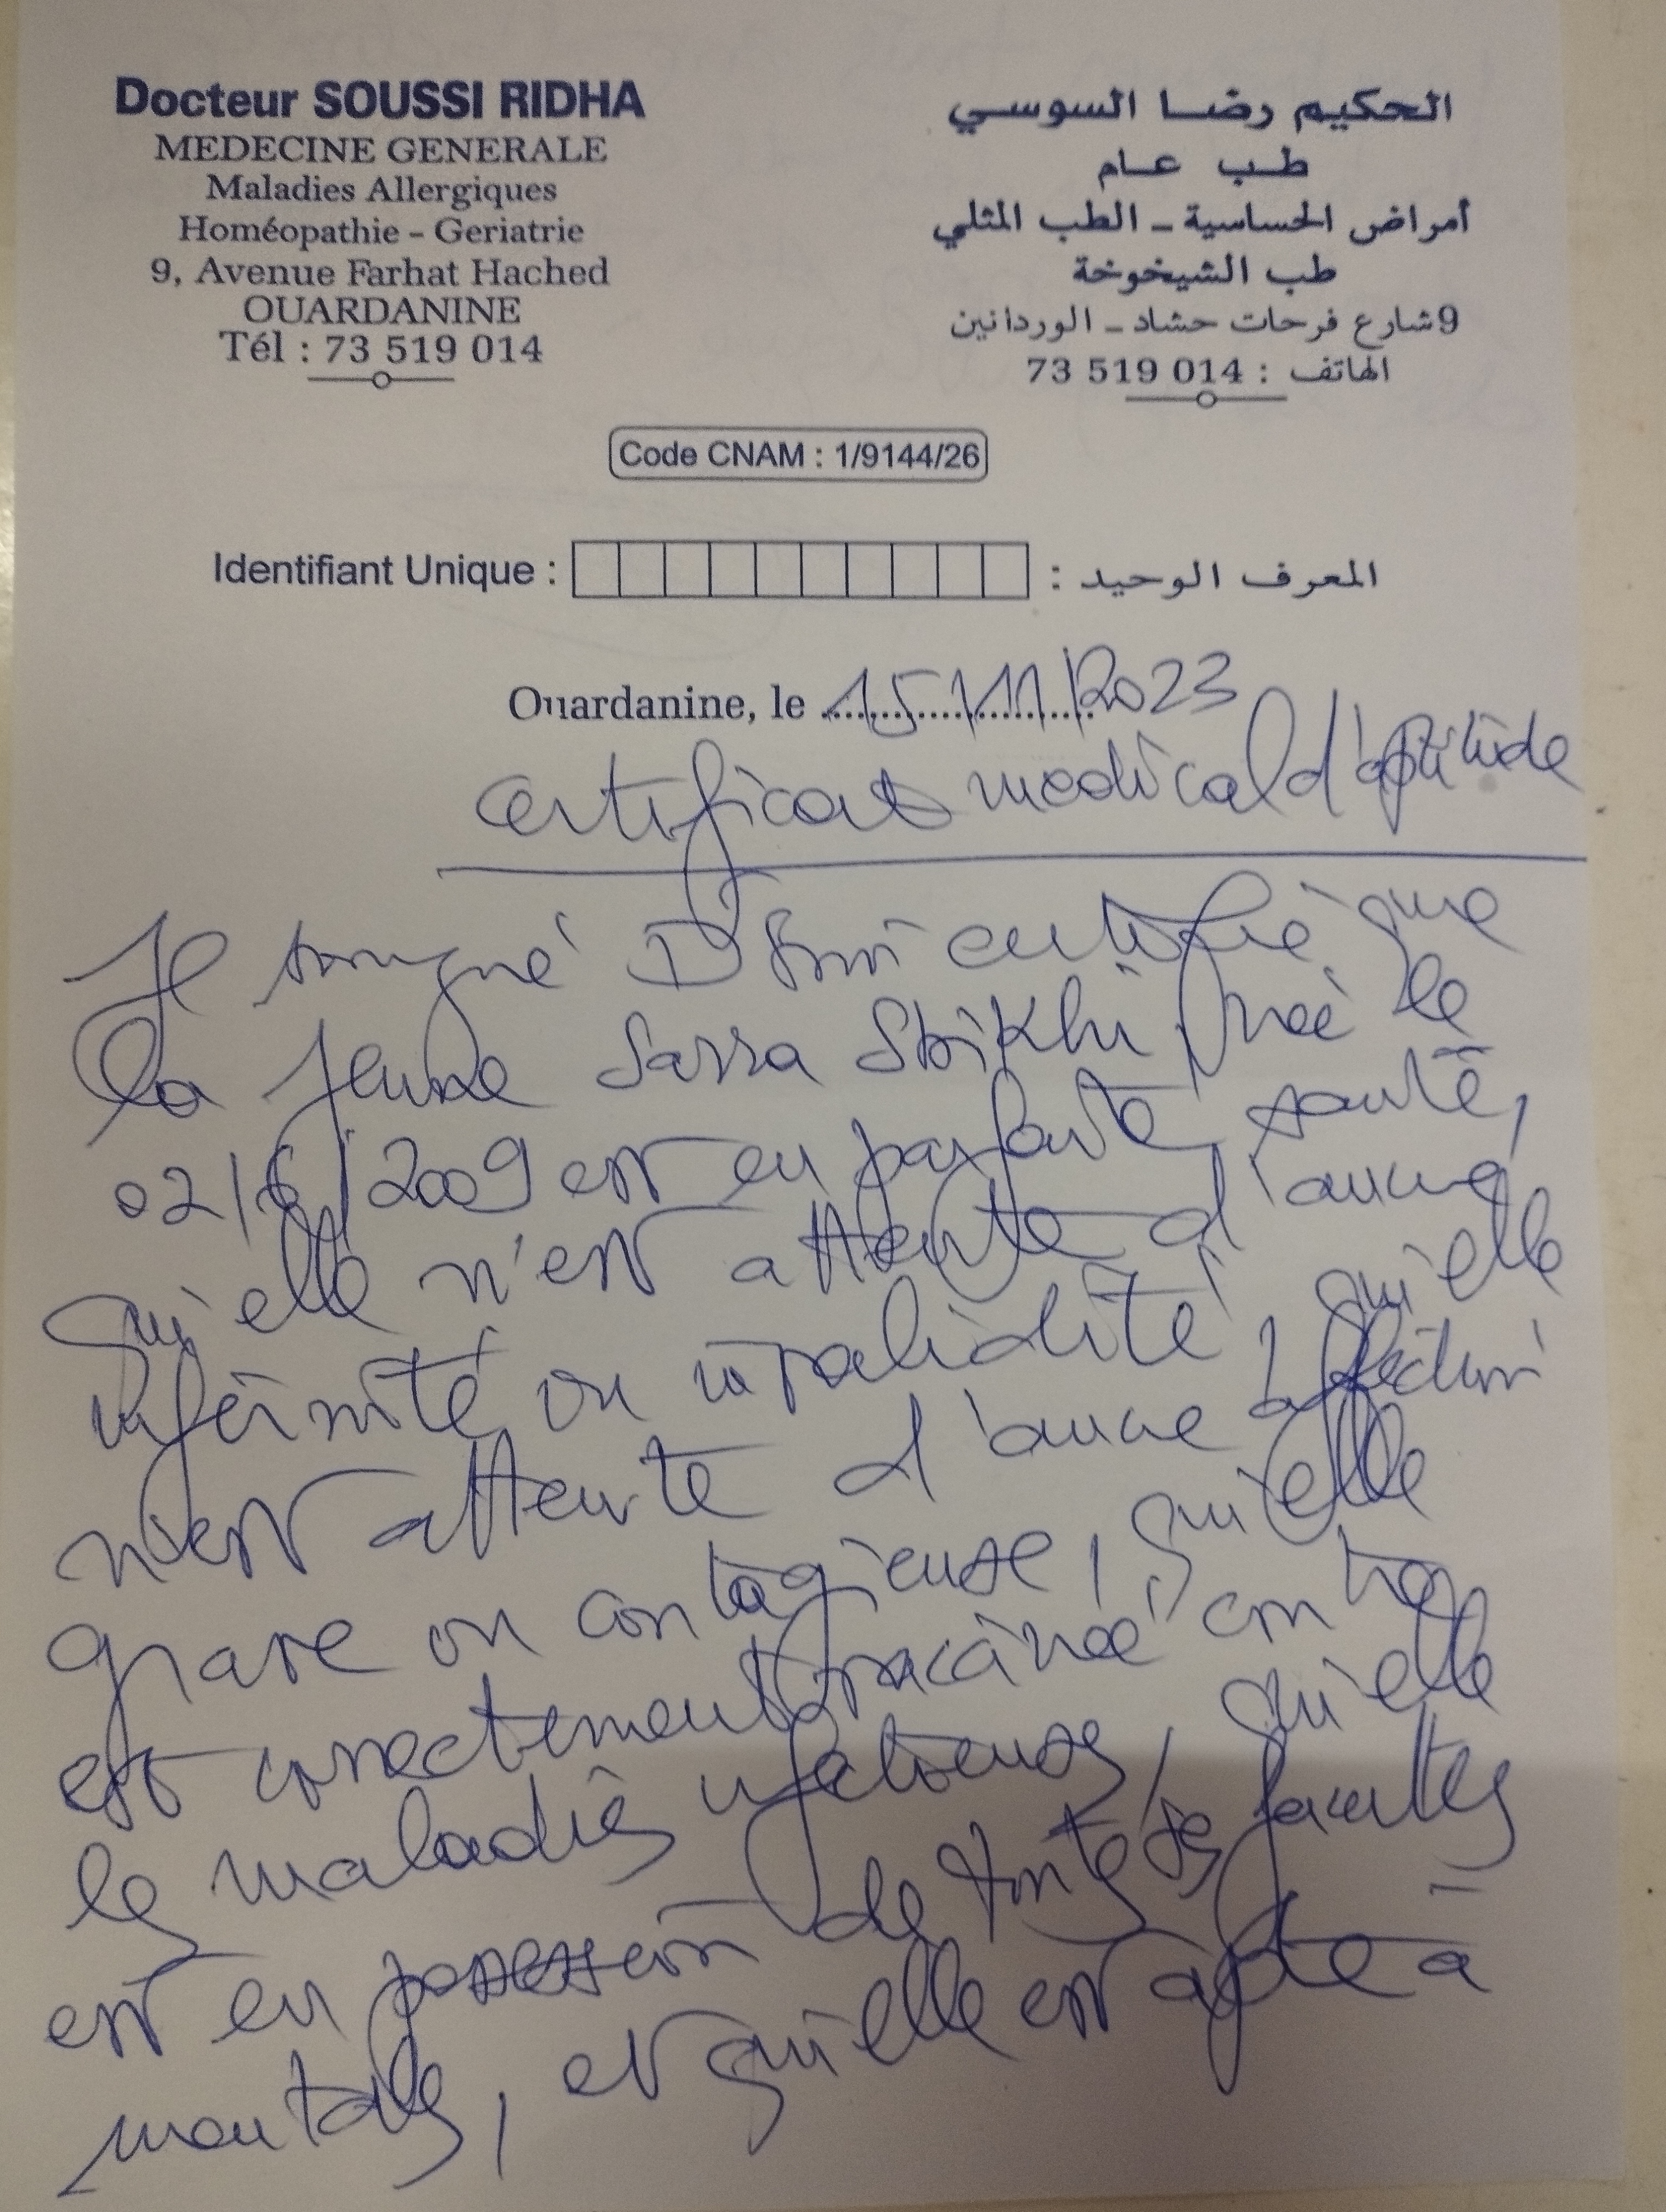 Docteur SOUSSI RIDHA
MEDECINE GENERALE
Maladies Allergiques
Homéopathie - Geriatrie
9, Avenue Farhat Hached
OUARDANINE
Tél : 73 519 014
الحكيم رضا السوسي
طب عام
أمراض الحساسية - الطب المثلي
طب الشيخوخة
9 شارع فرحات حشاد - الوردانين
الهاتف : 014 519 73
Code CNAM : 1/9144/26
Identifiant Unique : المعرف الوحيد :
Ouardanine, le 15/11/2023
certificat medical d'aptitude
Je soussigné Dr Soussi certifie que
la jeune Sarra Sbikhi née le
02/6/2009 est en parfaite santé,
qu'elle n'est atteinte d'aucune
infirmité ou invalidité, qu'elle
n'est atteinte d'aucune affection
grave ou contagieuse, qu'elle
est correctement vaccinée contre
les maladies infectieuses, qu'elle
est en possession de toutes ses facultés
mentales, et qu'elle est apte à